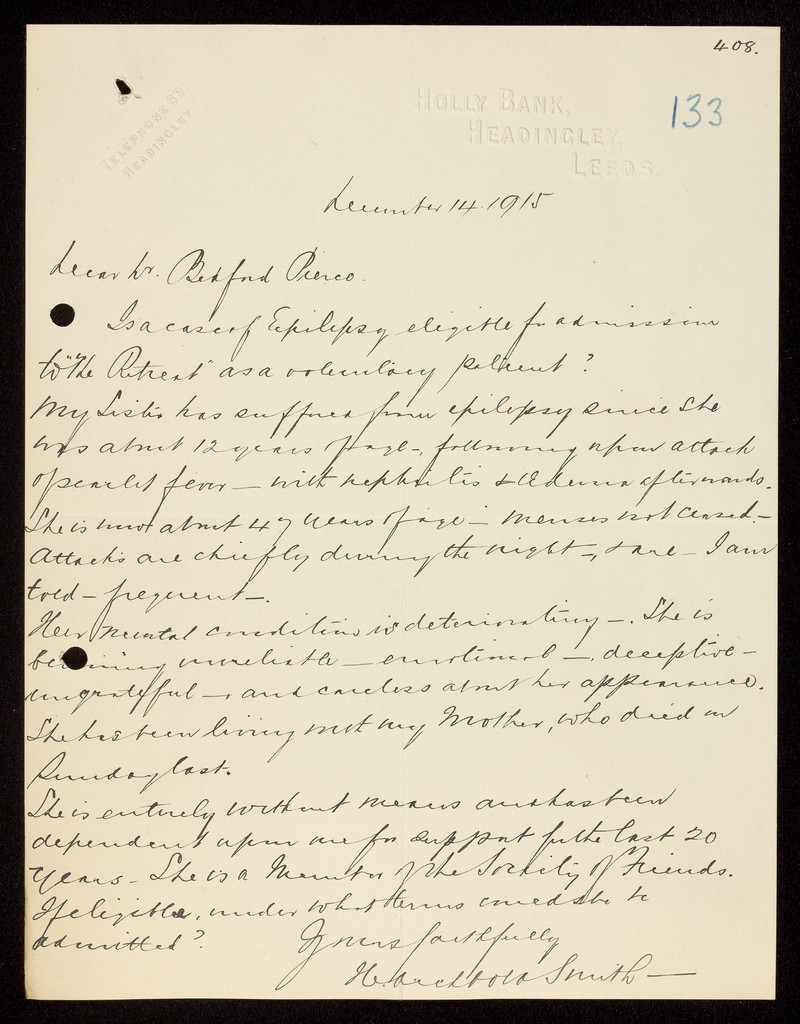 408.
133
TELEPHONE 89.
HEADINGLEY
HOLLY BANK,
HEADINGLEY,
LEEDS.
December 14. 1915
Dear Dr. Bedford Pierce.
Is a case of Epilepsy eligible for admission
to "The Retreat" as a voluntary patient?
My Sister has suffered from epilepsy since she
was about 12 years of age -, following upon attack
of scarlet fever - with nephritis & Œdema afterwards.
She is now about 47 years of age - menses not ceased. -
Attacks are chiefly during the night -, & are - I am
told - frequent -.
Her mental condition is deteriorating -. She is
becoming unreliable - emotional -, deceptive -
ungrateful -, and careless about her appearance.
She has been living with my Mother, who died on
Sunday last.
She is entirely without means and has been
dependent upon me for support for the last 20
years - She is a Member of the Society of Friends.
If eligible, under what terms could she be
admitted?
Yours faithfully
H. Archbold Smith -